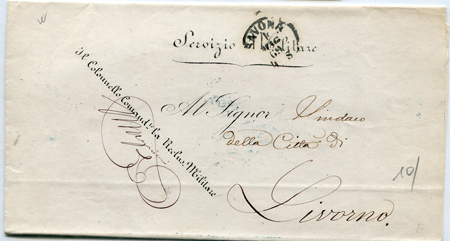 Servizio Militare
SAVONA
Il Colonnello Comand.te la Reclus. Militare
Al Signor Sindaco
della Città di
Livorno.
10/